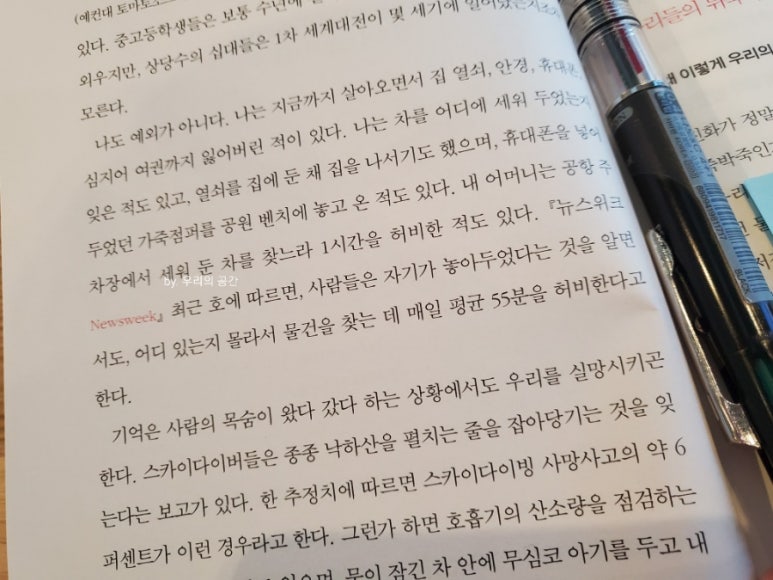 (예컨대 토마토소스
있다. 중고등학생들은 보통 수년에
외우지만, 상당수의 십대들은 1차 세계대전이 몇 세기에 일어났는지조차
모른다.
나도 예외가 아니다. 나는 지금까지 살아오면서 집 열쇠, 안경, 휴대폰,
심지어 여권까지 잃어버린 적이 있다. 나는 차를 어디에 세워 두었는지
잊은 적도 있고, 열쇠를 집에 둔 채 집을 나서기도 했으며, 휴대폰을 넣어
두었던 가죽점퍼를 공원 벤치에 놓고 온 적도 있다. 내 어머니는 공항 주
차장에서 세워 둔 차를 찾느라 1시간을 허비한 적도 있다. 『뉴스위크
Newsweek』 최근 호에 따르면, 사람들은 자기가 놓아두었다는 것을 알면
서도, 어디 있는지 몰라서 물건을 찾는 데 매일 평균 55분을 허비한다고
한다.
기억은 사람의 목숨이 왔다 갔다 하는 상황에서도 우리를 실망시키곤
한다. 스카이다이버들은 종종 낙하산을 펼치는 줄을 잡아당기는 것을 잊
는다는 보고가 있다. 한 추정치에 따르면 스카이다이빙 사망사고의 약 6
퍼센트가 이런 경우라고 한다. 그런가 하면 호흡기의 산소량을 점검하는
있으며, 문이 잠긴 차 안에 무심코 아기를 두고 내
by 우리의 공간
이렇게 우리의
정말